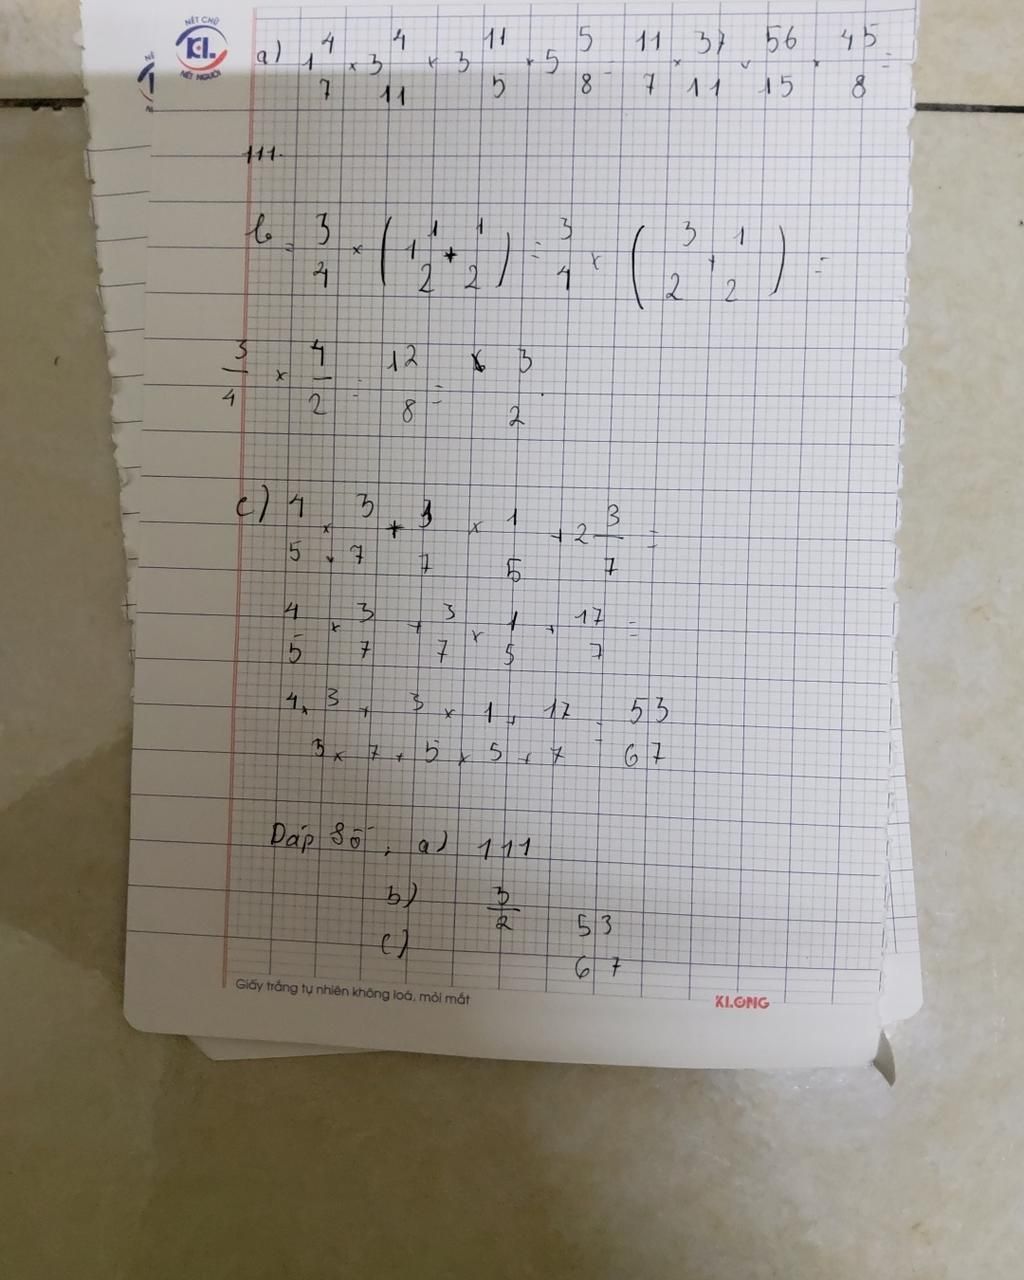 NÉT CHỮ
KL
NẾT NGƯỜI
a) 1 4/7 × 3 4/11 × 3 11/5 × 5 5/8 = 11/7 × 37/11 × 56/15 × 45/8 =
111.
b = 3/4 × (1 1/2 + 1/2) = 3/4 × (3/2 + 1/2) =
3/4 × 4/2 = 12/8 = 3/2
c) 4/5 × 3/7 + 3/7 × 1/5 + 2 3/7 =
4/5 × 3/7 + 3/7 × 1/5 + 17/7 =
4 × 3 + 3 × 1 + 17 = 53
3 × 7 + 5 × 5 + 7 67
Dáp Số : a) 111
b) 3/2
c) 53/67
Giấy trắng tự nhiên không loá, mỏi mắt
KLONG